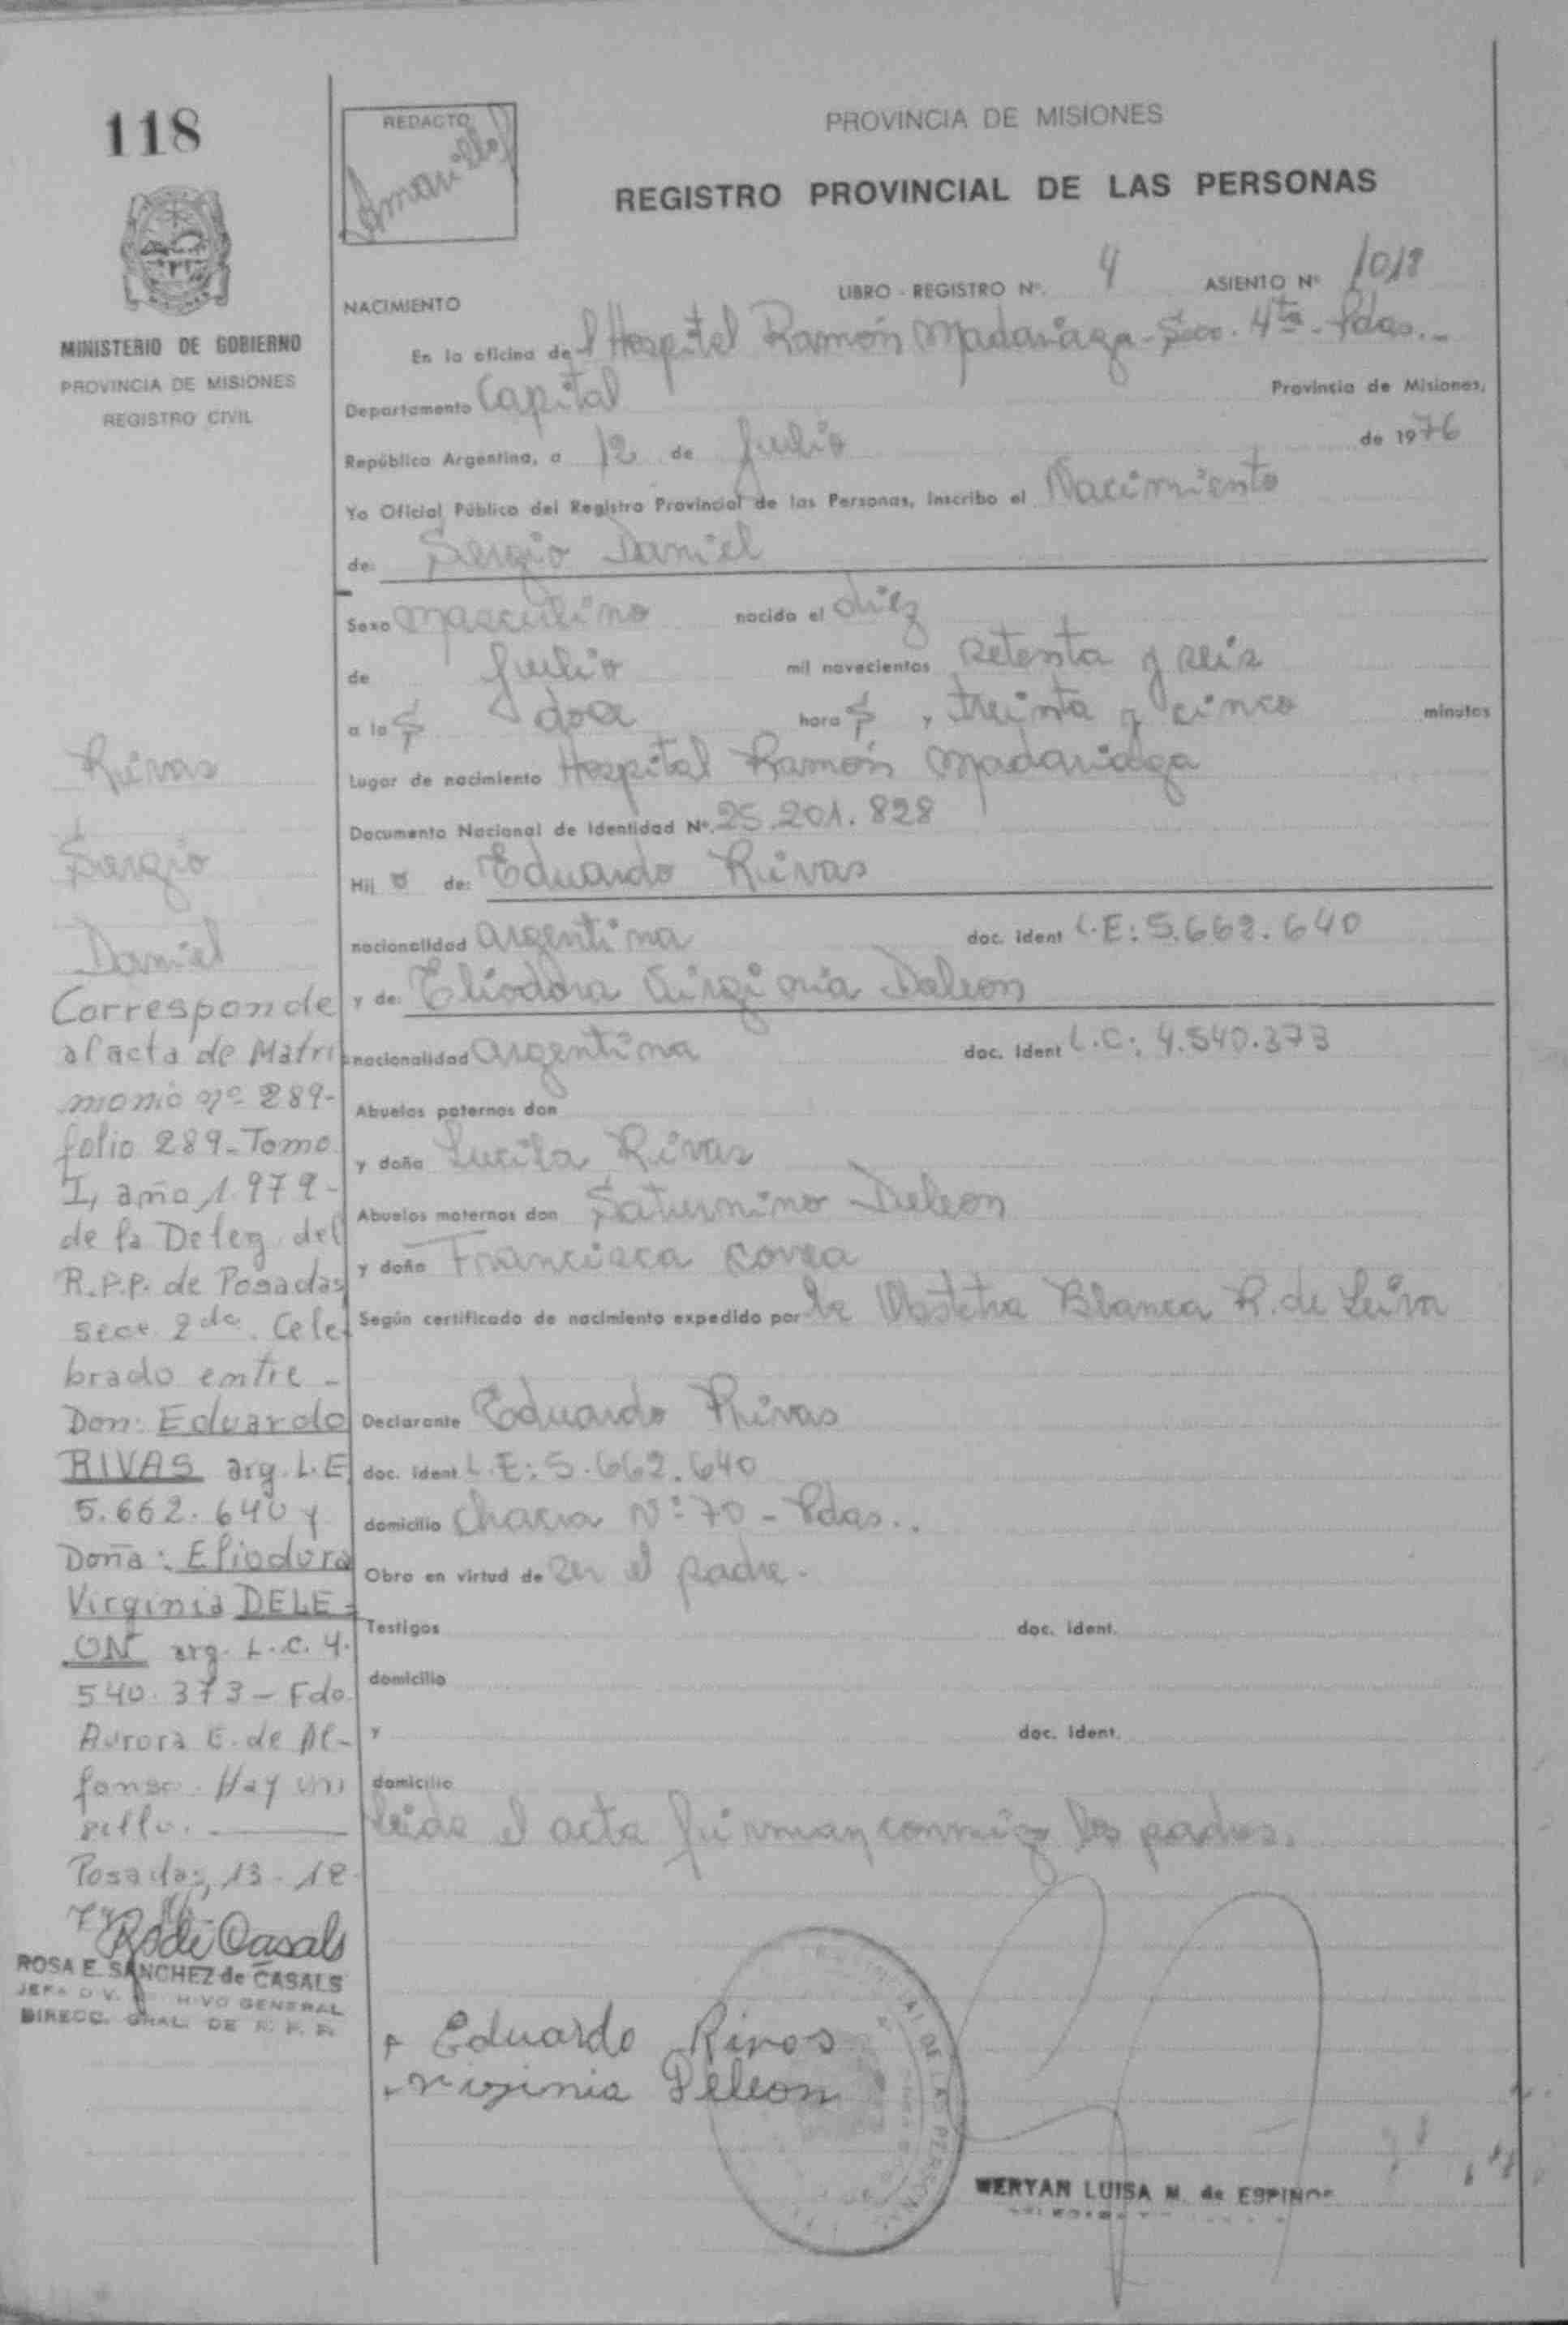 118
MINISTERIO DE GOBIERNO
PROVINCIA DE MISIONES
REGISTRO CIVIL
REDACTO
PROVINCIA DE MISIONES
REGISTRO PROVINCIAL DE LAS PERSONAS
LIBRO - REGISTRO Nº. 4 ASIENTO Nº 1018
NACIMIENTO
En la oficina del Hospital Ramón Madariaga - Secc. 4ta - Pdas. -
Departamento Capital Provincia de Misiones,
República Argentina, a 12 de Julio de 1976
Yo Oficial Público del Registro Provincial de las Personas, inscribo el Nacimiento
de: Sergio Daniel
Sexo Masculino nacido el diez
de Julio mil novecientos setenta y seis
a las doce horas y treinta y cinco minutos
Lugar de nacimiento Hospital Ramón Madariaga
Documento Nacional de Identidad Nº. 25.201.828
Hijo de: Eduardo Rivas
nacionalidad argentina doc. ident L.E: 5.662.640
y de: Eliodora Virginia Deleon
nacionalidad argentina doc. ident L.C: 4.540.373
Abuelos paternos don
y doña Lucila Rivas
Abuelos maternos don Saturnino Deleon
y doña Francisca
Según certificado de nacimiento expedido por la Obstetra Blanca R. de Leiva
Declarante Eduardo Rivas
doc. ident L.E: 5.662.640
domicilio Chacra Nº 70 - Pdas..
Obra en virtud de ser el padre.
Testigos doc. ident.
domicilio
y doc. ident.
domicilio
leida el acta firman conmigo los padres.
Eduardo Rivas
Virginia Deleon
WERYAN LUISA M. de
Rivas
Sergio
Daniel
Corresponde
al acta de Matri
monio nº 289-
folio 289- Tomo
I, año 1.979-
de la Deleg. del
R.P.P. de Posadas
secc. 2da. Cele-
brado entre -
Don: Eduardo
RIVAS arg. L.E
5.662.640 y
Doña: Eliodora
Virginia DELE-
ON arg. L.C. 4.
540.373 - Fdo.
Aurora E. de Al-
fonso. Hay un
sello.
Posadas, 13-12-
ROSA E. SANCHEZ de CASALS
JEFA DIV. ARCHIVO GENERAL
DIRECC. GRAL. DE R. P. P.